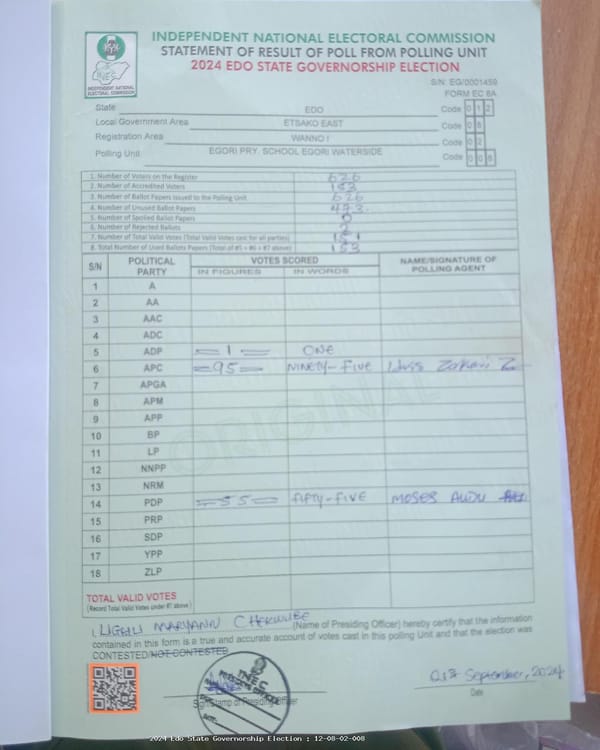 INDEPENDENT NATIONAL ELECTORAL COMMISSION
STATEMENT OF RESULT OF POLL FROM POLLING UNIT
2024 EDO STATE GOVERNORSHIP ELECTION
INEC
INDEPENDENT NATIONAL ELECTORAL COMMISSION
S/N: EG/0001459
FORM EC 8A
State EDO Code 0 1 2
Local Government Area ETSAKO EAST Code 0 8
Registration Area WANNO I Code 0 2
Polling Unit EGORI PRY. SCHOOL EGORI WATERSIDE Code 0 0 8
1. Number of Voters on the Register 626
2. Number of Accredited Voters 153
3. Number of Ballot Papers Issued to the Polling Unit 626
4. Number of Unused Ballot Papers 473
5. Number of Spoiled Ballot Papers 0
6. Number of Rejected Ballots 2
7. Number of Total Valid Votes (Total Valid Votes cast for all parties) 151
8. Total Number of Used Ballots Papers (Total of #5 + #6 + #7 above) 153
S/N POLITICAL PARTY VOTES SCORED NAME/SIGNATURE OF POLLING AGENT
IN FIGURES IN WORDS
1 A
2 AA
3 AAC
4 ADC
5 ADP =1= ONE
6 APC =95= NINETY-FIVE
7 APGA
8 APM
9 APP
10 BP
11 LP
12 NNPP
13 NRM
14 PDP =55= FIFTY-FIVE MOSES AUDU
15 PRP
16 SDP
17 YPP
18 ZLP
ORIGINAL
TOTAL VALID VOTES
(Record Total Valid Votes under #7 above)
I, MARYANN (Name of Presiding Officer) hereby certify that the information
contained in this form is a true and accurate account of votes cast in this polling Unit and that the election was
CONTESTED/NOT CONTESTED
INEC
PRESIDING OFFICER
Sign/Stamp of Presiding Officer
September, 2024
Date
2024 Edo State Governorship Election : 12-08-02-008